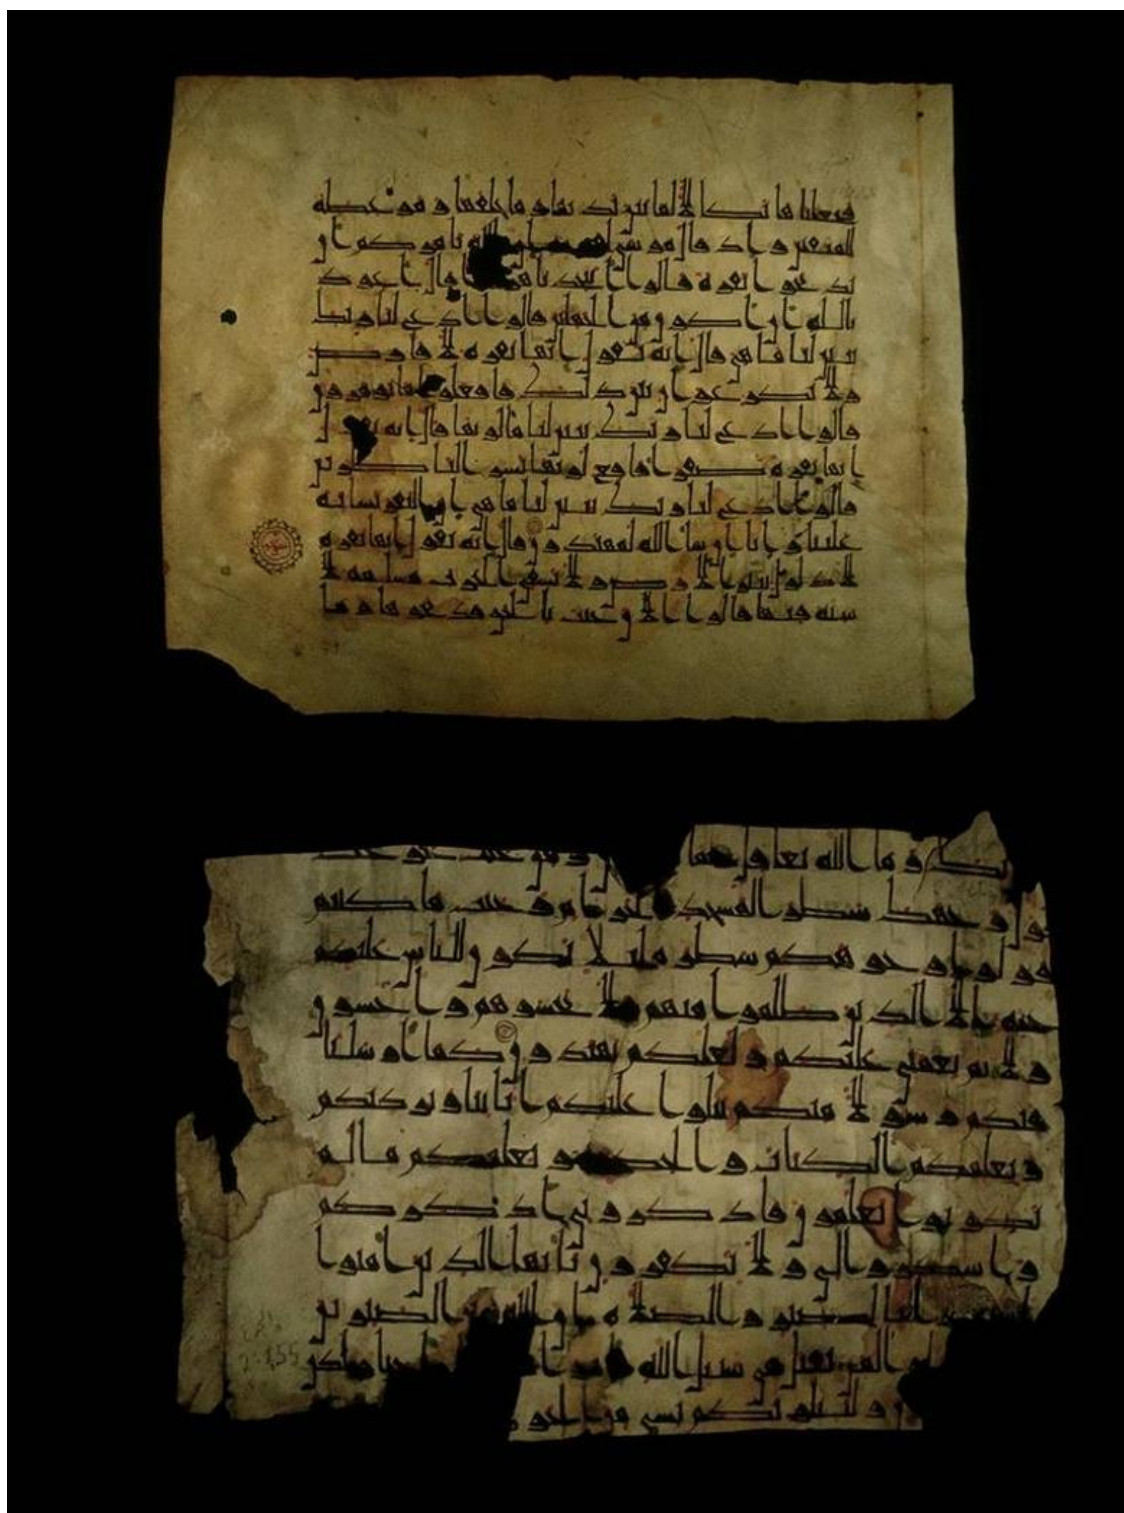 فجعلناها نكالا لما بين يديها وما خلفها وموعظة
للمتقين واذ قال موسى لقومه الله يامركم ان
تذبحوا بقرة قالوا اتتخذنا قال اعوذ
بالله ان اكون من الجهلين قالوا ادع لنا ربك
يبين لنا ما هي قال انه يقول انها بقرة لا فارض
ولا بكر عوان بين ذلك فافعلوا ما تومرون
قالوا ادع لنا ربك يبين لنا ما لونها قال انه يقول
انها بقرة صفرا فاقع لونها تسر الناظرين
قالوا ادع لنا ربك يبين لنا ما هي ان البقر تشبه
علينا وانا ان شا الله لمهتدون قال انه يقول انها بقرة
لا ذلول تثير الارض ولا تسقي الحرث مسلمة لا
شية فيها قالوا الان جئت بالحق فذبحوها وما
ربك وما الله بغافل عما ومن حيث خرجت
فول وجهك شطر المسجد الحرام وحيث ما كنتم
فولوا وجوهكم شطره لئلا يكون للناس عليكم
حجة الا الذين ظلموا منهم فلا تخشوهم واخشون
ولاتم نعمتي عليكم ولعلكم تهتدون كما ارسلنا
فيكم رسولا منكم يتلوا عليكم ايتنا ويزكيكم
ويعلمكم الكتاب والحكمة ويعلمكم ما لم
تكونوا تعلمون فاذكروني اذكركم
واشكروا لي ولا تكفرون يايها الذين امنوا
استعينوا بالصبر والصلوة ان الله مع الصبرين
لمن يقتل في سبيل الله احيا ولكن
ولنبلونكم بشي من الخوف
2:155